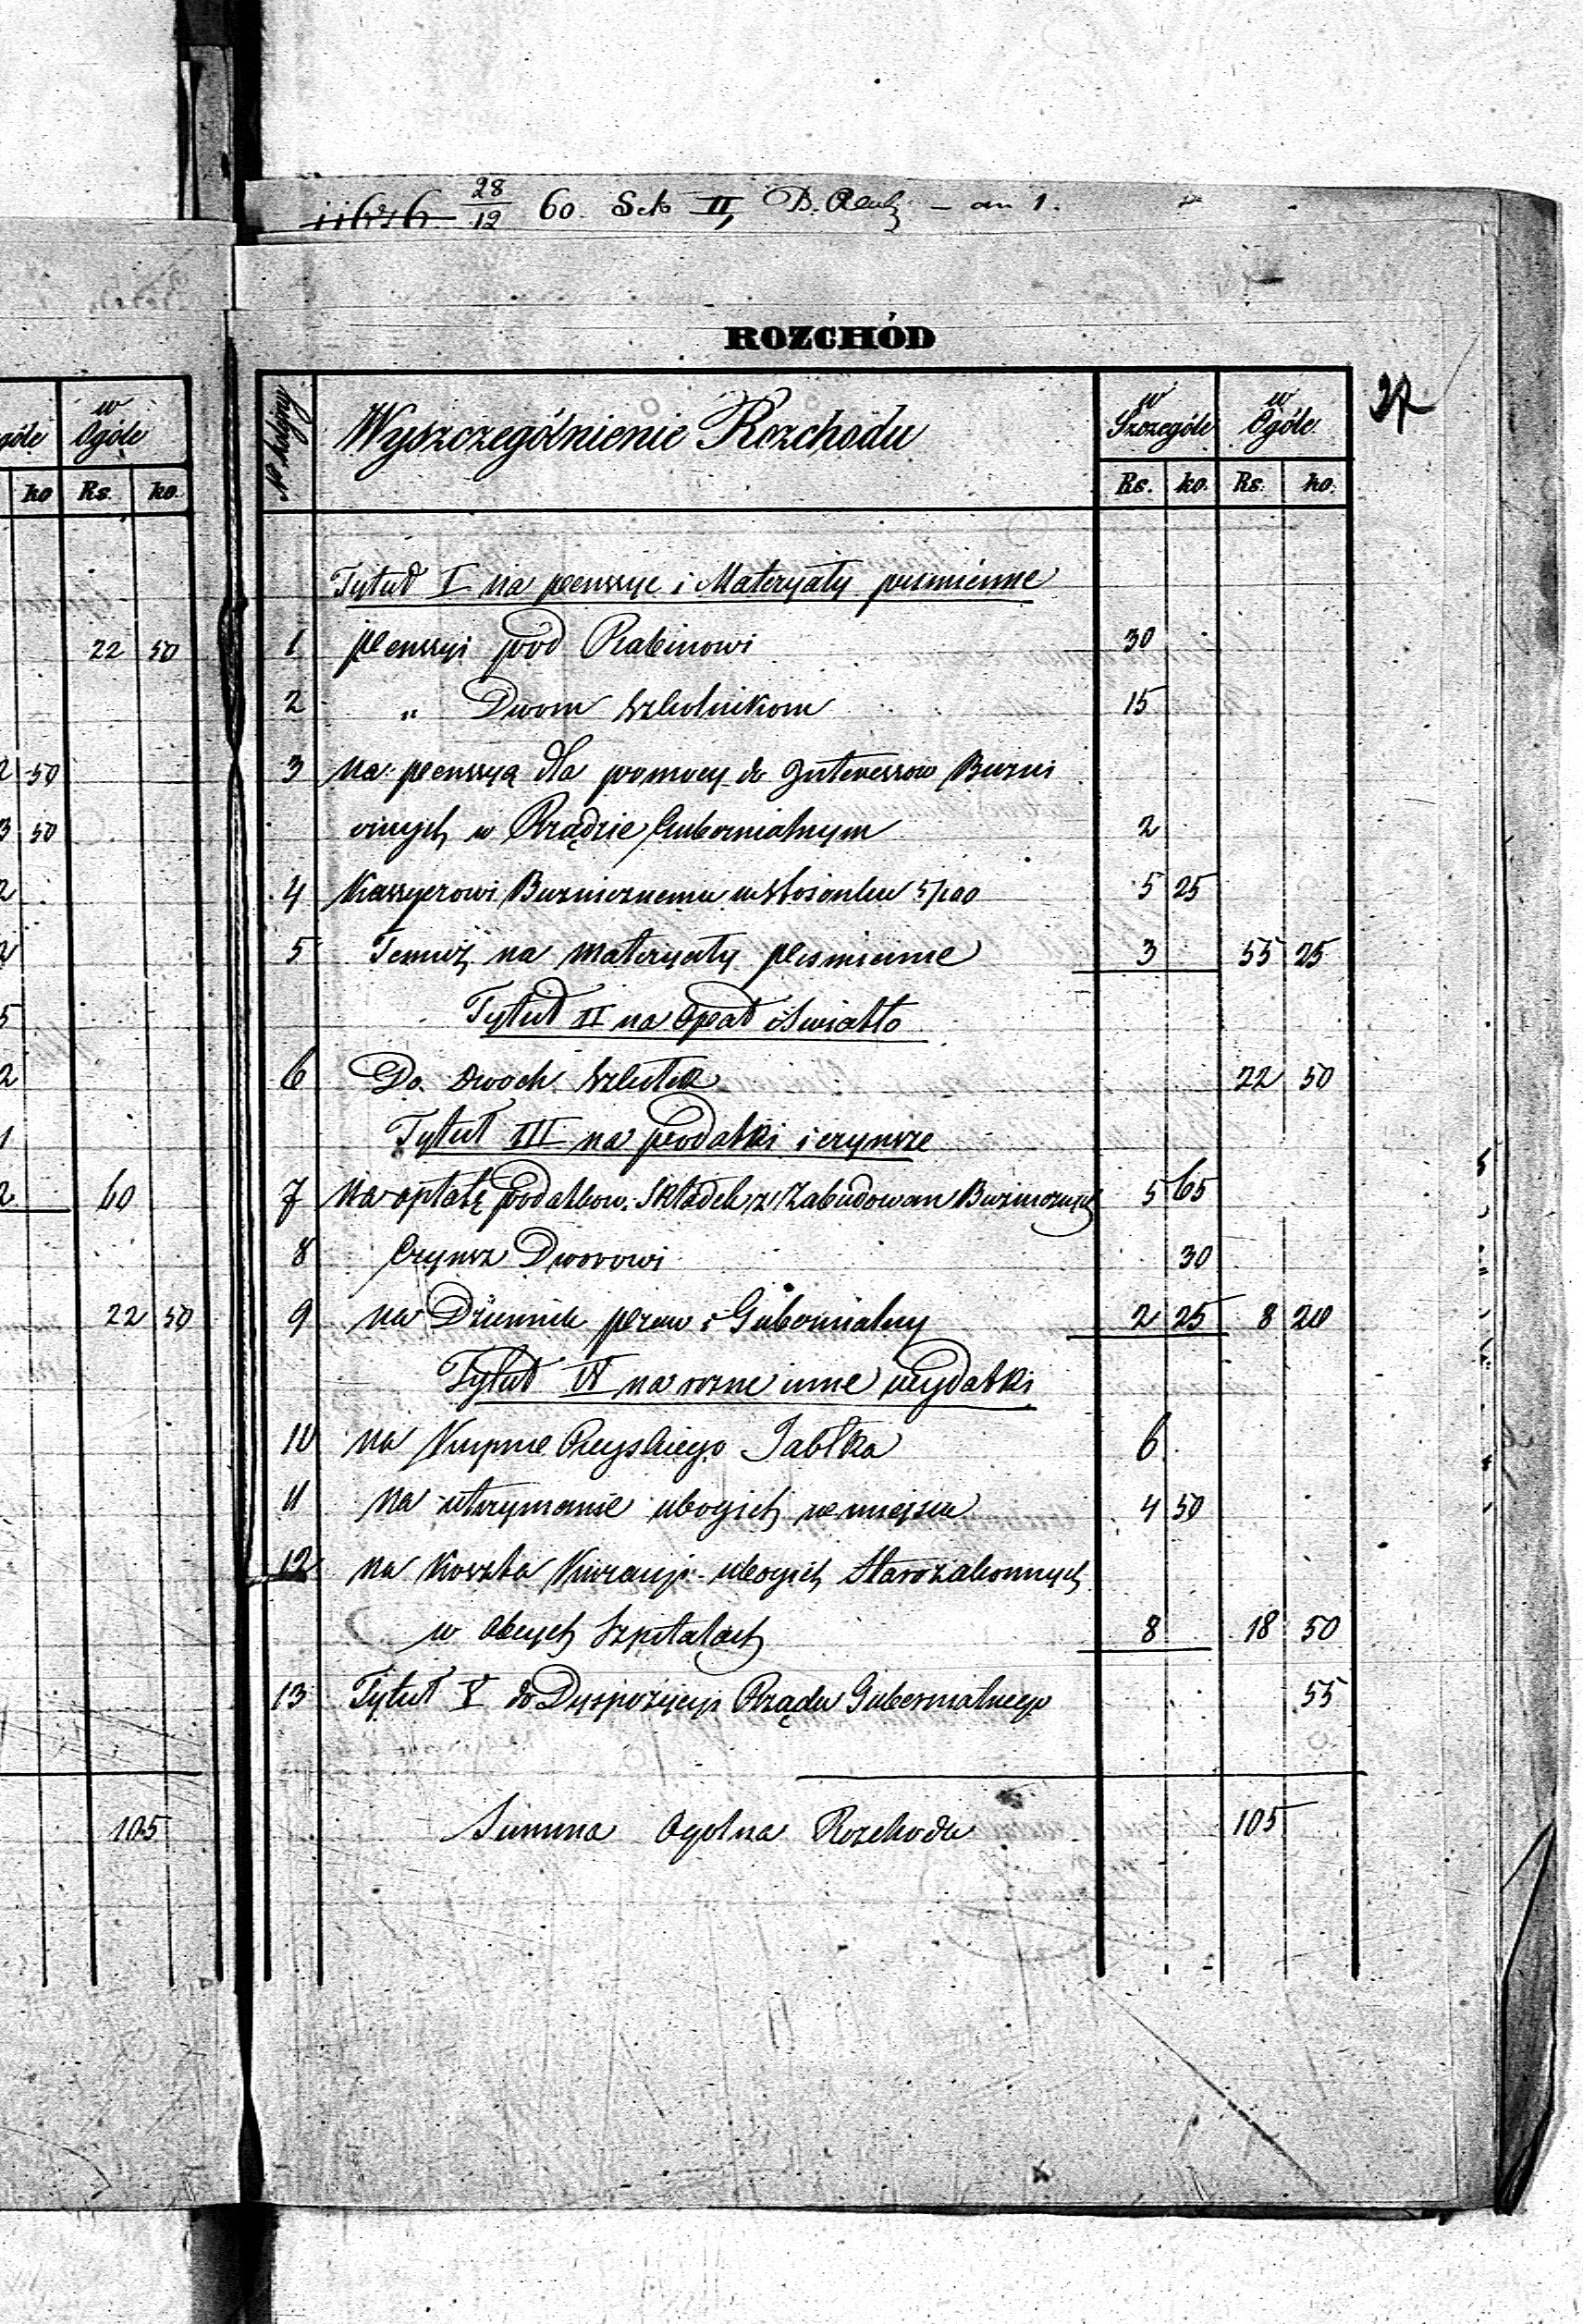 góle
w Ogóle
ko Rs. ko.
22 50
2 50
3 50
2
2
5
2
1
2 60
22 50
105
11676 28/12 60. Sek II, D.
ROZCHÓD
27
№ kolejny
Wyszczególnienie Rozchodu
w Szczególe
w Ogóle
Rs. ko. Rs. ko.
Tytuł I na penssye i Materyały pismienne
1 penssyi pod Rabinowi 30
2 " Dwom Szkolnikom 15
3 Na penssyą dla pomocy do Interessow Buzni
cznych w Rządzie Gubernialnym 2
4 Kassyerowi Buznicznemu w stosonku 5/100 5 25
5 Temuż na materyały pismienne 3 55 25
Tytuł II na Opał i Swiatło
6 Do dwoch Szkolek 22 50
Tytuł III na podatki i czynsze
7 Na opłatę podatkow i Składek z Zabudowan Buznicznych 5 65
8 Czynsz Dworowi 30
9 na Dziennik praw i Gubernialny 2 25 8 20
Tytuł IV na rozne inne wydatki
10 na Kupno Rayskiego Jabłka 6
11 Na utrzymanie ubogich w miejscu 4 50
12 na Koszta Kuracyi ubogich Starozakonnych
w obcych Szpitalach 8 18 50
13 Tytuł V do Dyspozycyi Rządu Gubernialnego 55
Summa Ogolna Rozchodu 105